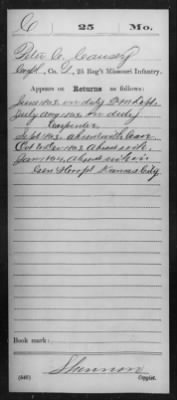 C 25 Mo.
Peter C. Causey
Corpl., Co. D, 25 Reg't Missouri Infantry.
Appears on Returns as follows:
June 1862 on duty
July Aug 1862 on duty
Carpenter
Sept 1862 absent with leave
Oct to Dec 1862 absent sick
Jan 1863 absent sick in
Gen Hospl Kansas City
Book mark:
Shannon
(646) Copyist.